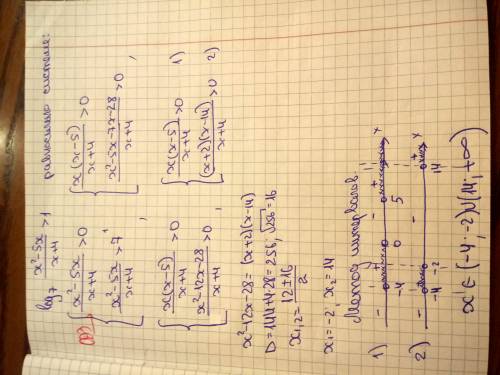 log₇ (x²-5x)/(x+4) > 1 равносильно системе:
ОДЗ { (x²-5x)/(x+4) > 0
(x²-5x)/(x+4) > 7 ,
{ x(x-5)/(x+4) > 0
(x²-5x-7x-28)/(x+4) > 0 ,
{ x(x-5)/(x+4) > 0
(x²-12x-28)/(x+4) > 0 ,
{ x(x-5)/(x+4) > 0 1)
(x+2)(x-14)/(x+4) > 0 2)
x²-12x-28 = (x+2)(x-14)
D=144+4·28=256; √256=16
x₁,₂= (12±16)/2
x₁=-2; x₂=14
Метод интервалов
1) - -4 + 0 - 5 + x
2) - -4 + -2 - 14 + x
x ∈ (-4; -2)∪(14; +∞)